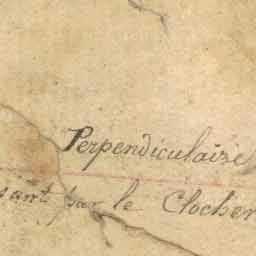 Perpendiculaire
sant par le Clocher